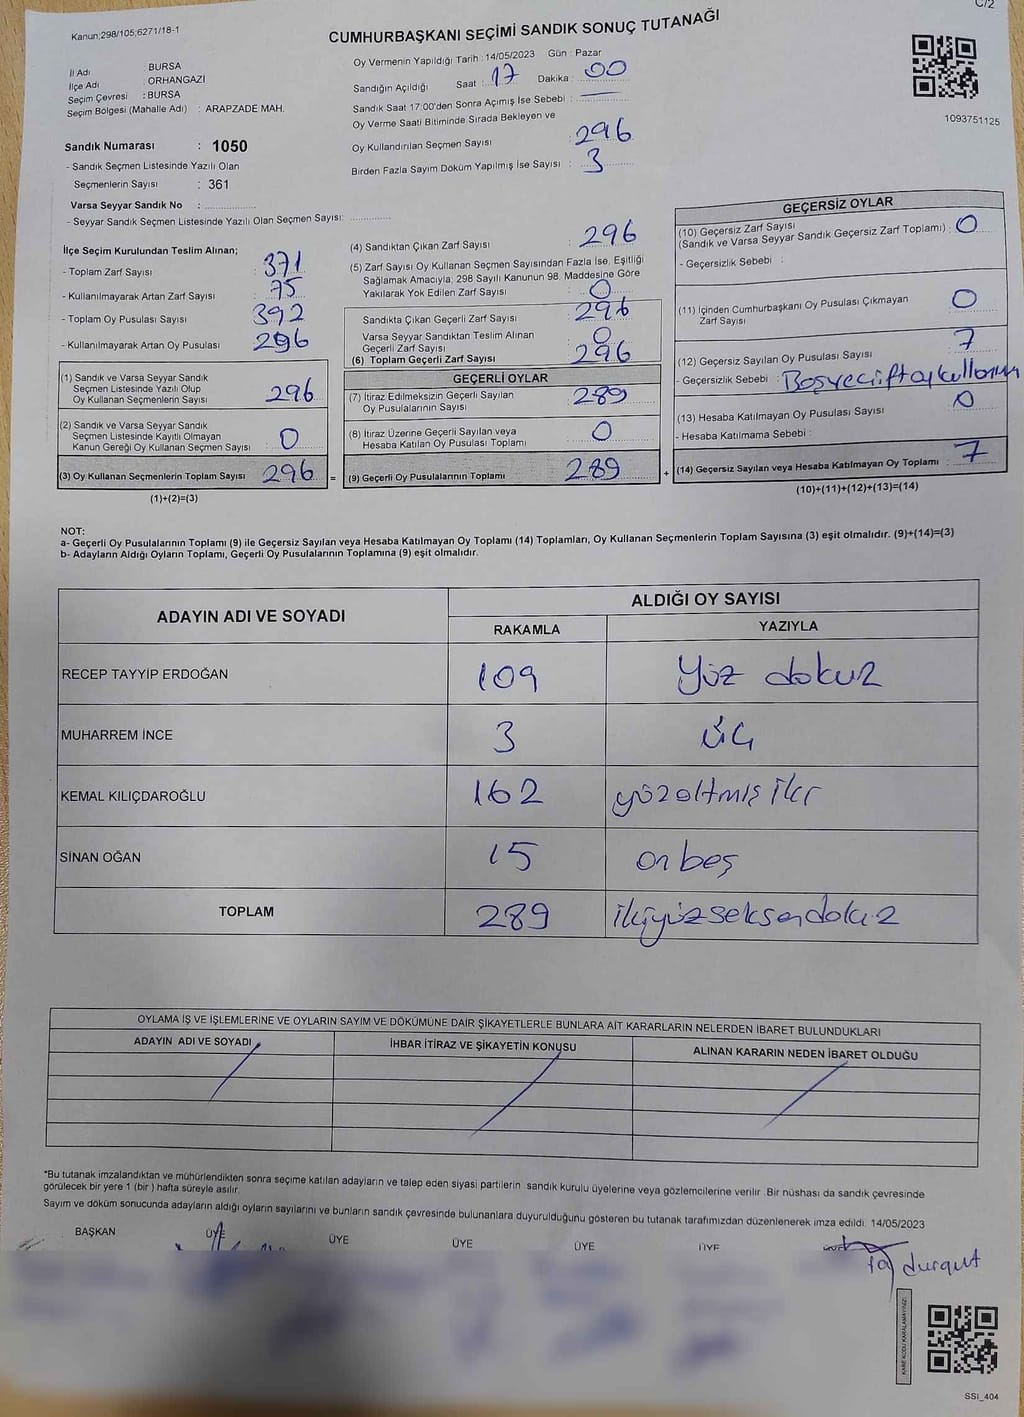 C/2
Kanun;298/105;6271/18-1
CUMHURBAŞKANI SEÇİMİ SANDIK SONUÇ TUTANAĞI
İl Adı : BURSA
İlçe Adı : ORHANGAZİ
Seçim Çevresi : BURSA
Seçim Bölgesi (Mahalle Adı) : ARAPZADE MAH.
Sandık Numarası : 1050
- Sandık Seçmen Listesinde Yazılı Olan
Seçmenlerin Sayısı : 361
Varsa Seyyar Sandık No :
- Seyyar Sandık Seçmen Listesinde Yazılı Olan Seçmen Sayısı:
Oy Vermenin Yapıldığı Tarih : 14/05/2023 Gün : Pazar
Sandığın Açıldığı Saat : 17 Dakika : 00
Sandık Saat 17:00'den Sonra Açımış İse Sebebi :
Oy Verme Saati Bitiminde Sırada Bekleyen ve
Oy Kullandırılan Seçmen Sayısı : 296
Birden Fazla Sayım Döküm Yapılmış İse Sayısı : 3
1093751125
İlçe Seçim Kurulundan Teslim Alınan;
- Toplam Zarf Sayısı : 371
- Kullanılmayarak Artan Zarf Sayısı : 75
- Toplam Oy Pusulası Sayısı : 392
- Kullanılmayarak Artan Oy Pusulası : 296
(1) Sandık ve Varsa Seyyar Sandık
Seçmen Listesinde Yazılı Olup
Oy Kullanan Seçmenlerin Sayısı : 296
(2) Sandık ve Varsa Seyyar Sandık
Seçmen Listesinde Kayıtlı Olmayan
Kanun Gereği Oy Kullanan Seçmen Sayısı : 0
(3) Oy Kullanan Seçmenlerin Toplam Sayısı : 296 =
(1)+(2)=(3)
(4) Sandıktan Çıkan Zarf Sayısı : 296
(5) Zarf Sayısı Oy Kullanan Seçmen Sayısından Fazla İse, Eşitliği
Sağlamak Amacıyla; 298 Sayılı Kanunun 98. Maddesine Göre
Yakılarak Yok Edilen Zarf Sayısı : 0
Sandıkta Çıkan Geçerli Zarf Sayısı : 296
Varsa Seyyar Sandıktan Teslim Alınan
Geçerli Zarf Sayısı : 0
(6) Toplam Geçerli Zarf Sayısı : 296
GEÇERLİ OYLAR
(7) İtiraz Edilmeksizin Geçerli Sayılan
Oy Pusulalarının Sayısı : 289
(8) İtiraz Üzerine Geçerli Sayılan veya
Hesaba Katılan Oy Pusulası Toplamı : 0
(9) Geçerli Oy Pusulalarının Toplamı : 289 +
GEÇERSİZ OYLAR
(10) Geçersiz Zarf Sayısı
(Sandık ve Varsa Seyyar Sandık Geçersiz Zarf Toplamı) : 0
- Geçersizlik Sebebi :
(11) İçinden Cumhurbaşkanı Oy Pusulası Çıkmayan
Zarf Sayısı : 0
(12) Geçersiz Sayılan Oy Pusulası Sayısı : 7
- Geçersizlik Sebebi : Boş ve çift oy kullanım
(13) Hesaba Katılmayan Oy Pusulası Sayısı : 0
- Hesaba Katılmama Sebebi :
(14) Geçersiz Sayılan veya Hesaba Katılmayan Oy Toplamı : 7
(10)+(11)+(12)+(13)=(14)
NOT:
a- Geçerli Oy Pusulalarının Toplamı (9) ile Geçersiz Sayılan veya Hesaba Katılmayan Oy Toplamı (14) Toplamları, Oy Kullanan Seçmenlerin Toplam Sayısına (3) eşit olmalıdır. (9)+(14)=(3)
b- Adayların Aldığı Oyların Toplamı, Geçerli Oy Pusulalarının Toplamına (9) eşit olmalıdır.
ADAYIN ADI VE SOYADI ALDIĞI OY SAYISI
RAKAMLA YAZIYLA
RECEP TAYYİP ERDOĞAN 109 Yüz dokuz
MUHARREM İNCE 3 üç
KEMAL KILIÇDAROĞLU 162 yüzaltmış iki
SİNAN OĞAN 15 on beş
TOPLAM 289 ikiyüzseksendokuz
OYLAMA İŞ VE İŞLEMLERİNE VE OYLARIN SAYIM VE DÖKÜMÜNE DAİR ŞİKAYETLERLE BUNLARA AİT KARARLARIN NELERDEN İBARET BULUNDUKLARI
ADAYIN ADI VE SOYADI İHBAR İTİRAZ VE ŞİKAYETİN KONUSU ALINAN KARARIN NEDEN İBARET OLDUĞU
*Bu tutanak imzalandıktan ve mühürlendikten sonra seçime katılan adayların ve talep eden siyasi partilerin sandık kurulu üyelerine veya gözlemcilerine verilir .Bir nüshası da sandık çevresinde
görülecek bir yere 1 (bir ) hafta süreyle asılır.
Sayım ve döküm sonucunda adayların aldığı oyların sayılarını ve bunların sandık çevresinde bulunanlara duyurulduğunu gösteren bu tutanak tarafımızdan düzenlenerek imza edildi. 14/05/2023
BAŞKAN ÜYE ÜYE ÜYE ÜYE ÜYE
durgut
KARE KODU KARALAMAYINIZ!
SSI_404